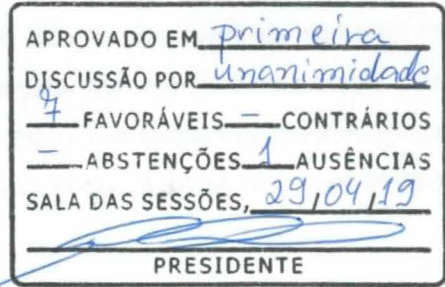 APROVADO EM primeira
DISCUSSÃO POR unanimidade
7 FAVORÁVEIS – CONTRÁRIOS
– ABSTENÇÕES 1 AUSÊNCIAS
SALA DAS SESSÕES, 29/04/19
PRESIDENTE